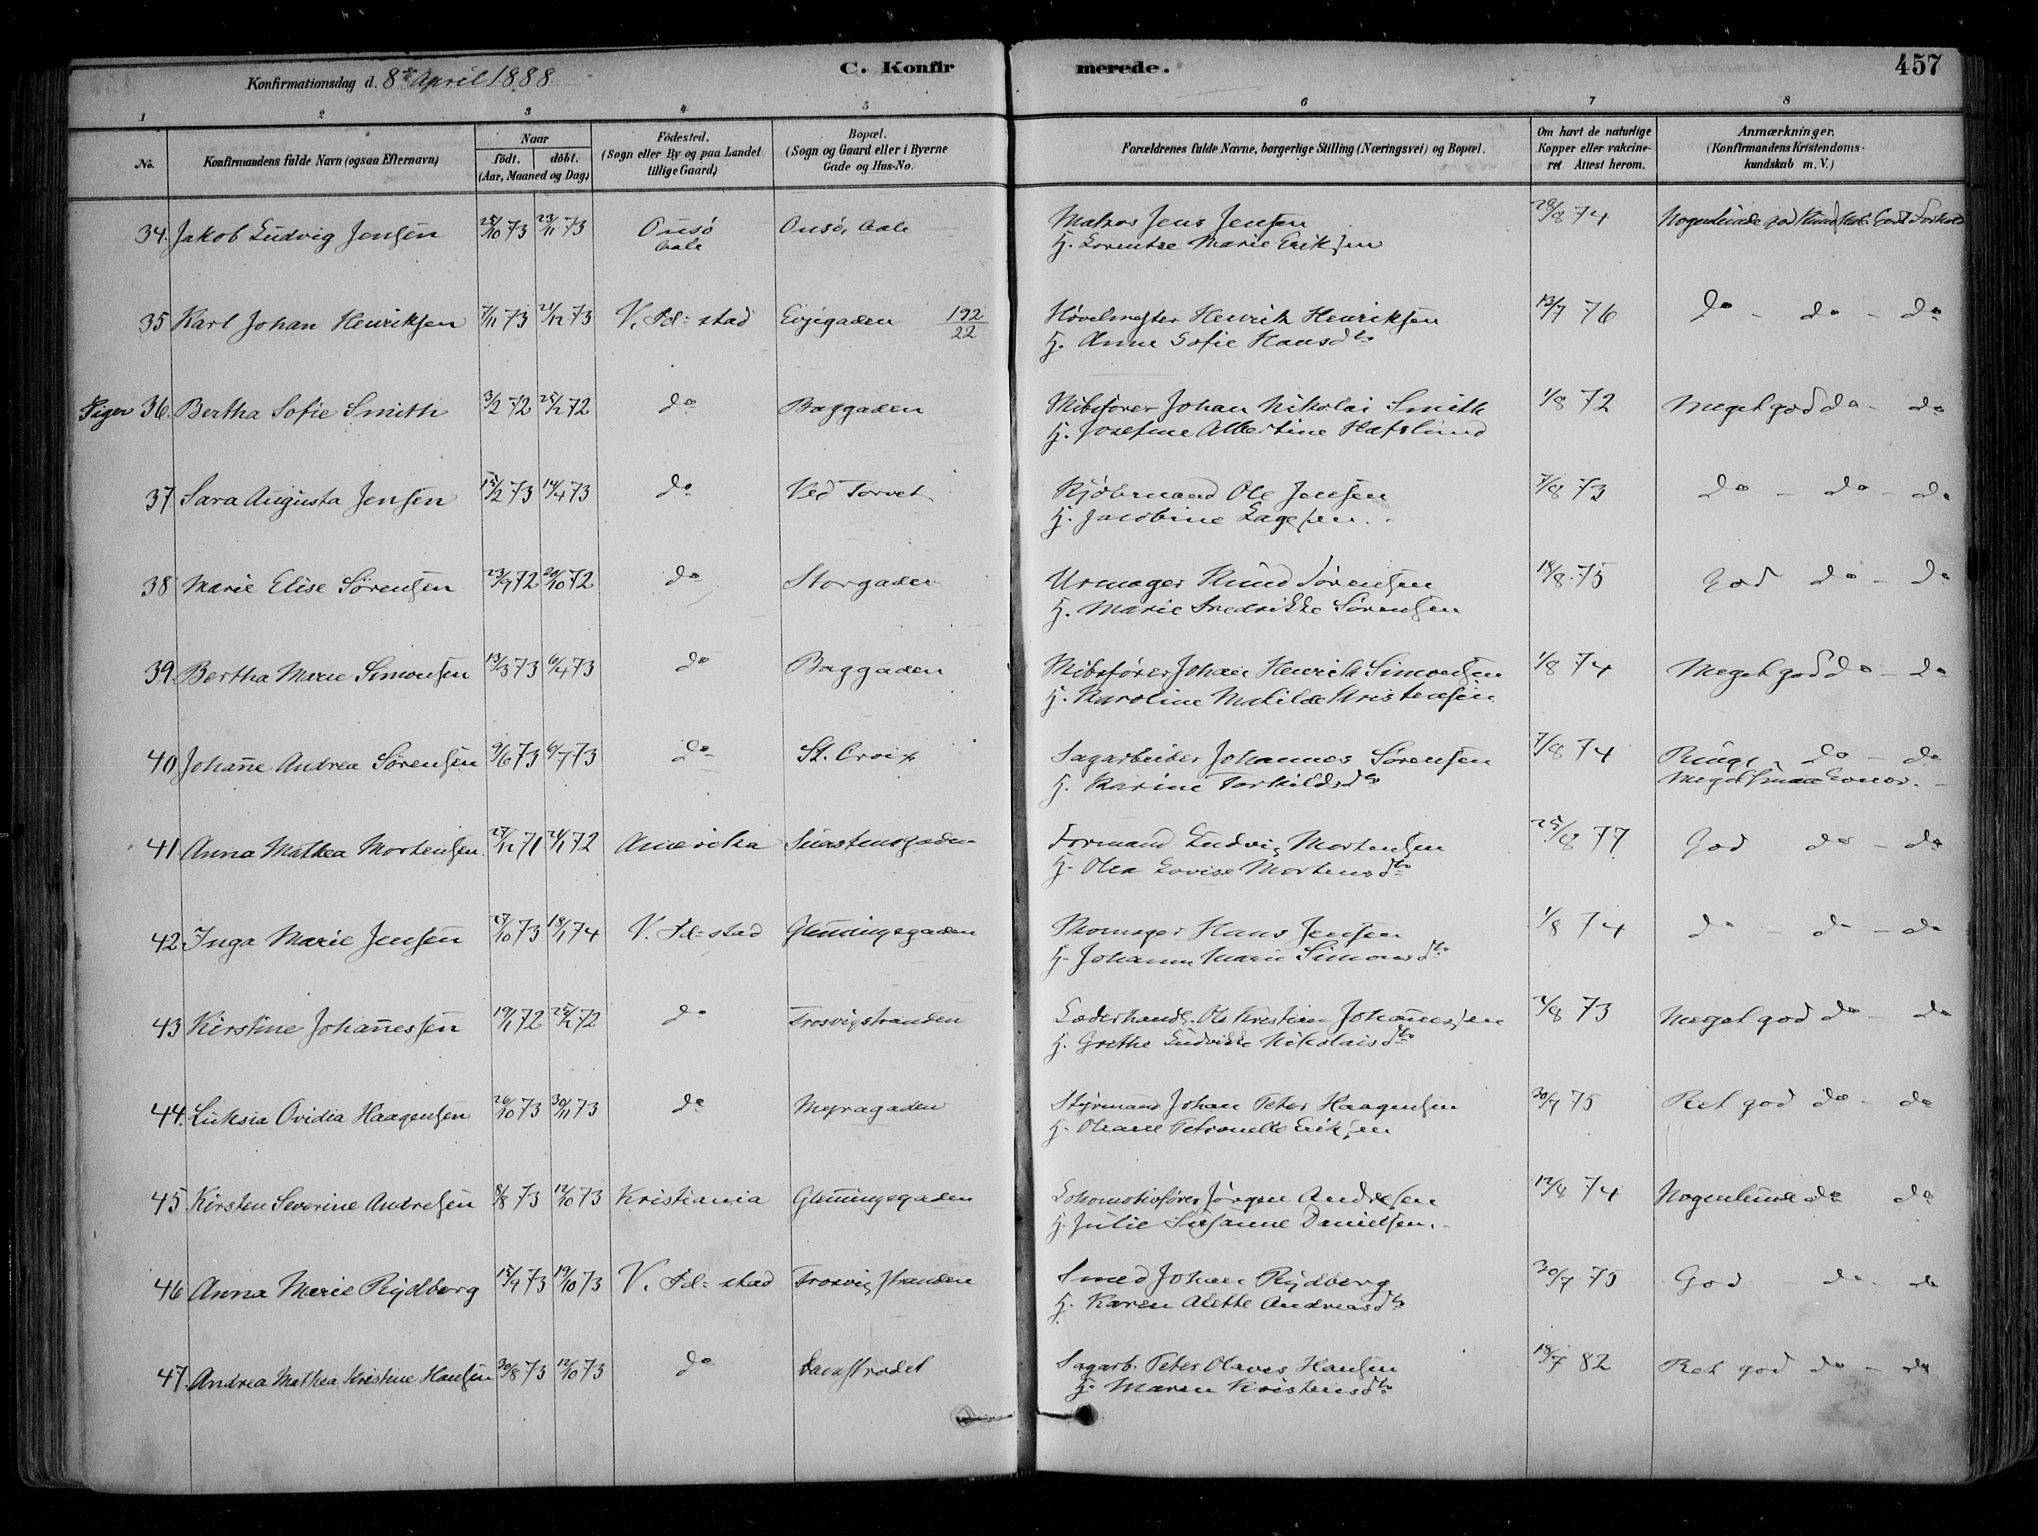 C. Konfirmerede. 457
Konfirmationsdag d. 8de April 1888.
1 2 3 4 5 6 7 8
No.
Konfirmandens fulde Navn (ogsaa Efternavn)
Naar
født. døbt.
(Aar, Maaned og Dag)
Fødested.
(Sogn eller By og paa Landet
tillige Gaard)
Bopæl.
(Sogn og Gaard eller i Byerne
Gade og Hus-No.
Forældrenes fulde Navne, borgerlige Stilling (Næringsvei) og Bopæl.
Om havt de naturlige
Kopper eller vakcine-
ret. Attest herom.
Anmærkninger.
(Konfirmandens Kristendoms-
kundskab m. V.)
34. Jakob Ludvig Jensen 25/10 73 23/11 73 Onsø Onsø, Aale Matros Jens Jensen 28/8 74 Nogenlunde god Kundskab. Godt Forhold
Aale H. Lorentse Marie Eriksen
35 Karl Johan Henriksen 7/11 73 21/12 73 V. Fd=stad Evjegaden 192/22 Høvelmester Henrik Henriksen 13/7 76 do - do - do
H. Anne Sofie Hansdtr
Piger 36. Bertha Sofie Smith 3/2 72 25/12 72 do Baggaden Skibsfører Johan Nikolai Smith 1/8 72 Meget god do - do
H. Josefine Albertine Hafslund
37. Sara Augusta Jensen 15/2 73 14/4 73 do Ved Torvet Kjøbmand Ole Jensen 7/8 73 do - do - do
H. Jacobine Lagesen.
38 Marie Elise Sørensen 23/9 72 20/10 72 do Storgaden Urmager Knud Sørensen 18/8 75 God do - do
H. Marie Fredrikke Sørensen
39. Bertha Marie Simonsen 13/3 73 6/4 73 do Baggaden Skibsfører Johan Henrik Simonsen 1/8 74 Meget god do - do
H. Karoline Matilde Kristensen
40 Johanne Andrea Sørensen 9/6 73 6/7 73 do St. Croix Sagarbeider Johannes Sørensen 7/8 74 Ringe - do - do
H. Karine Torkildsdtr Meget smaa Evner.
41. Anna Mathea Mortensen. 27/12 71 21/1 72 Amerika Formand Ludvig Mortensen 25/8 77 God do - do
H. Olea Lovise Mortensdtr
42. Inga Marie Jensen 27/10 73 18/1 74 V. Fd=stad Glemmingegaden Skomager Hans Jensen 1/8 74 do - do - do
H. Johanne Marie Simonsdtr
43 Kirstine Johannessen 19/1 72 25/2 72 do Trosvigstranden Læderhandl. Ole Kristian Johannessen 1/8 73 Meget god do - do
H. Grethe Ludvikke Nikolaisdtr
44. Luksia Ovidia Haagensen 26/10 73 30/11 73 do Styrmand Johan Peter Haagensen 30/7 75 Ret god do - do
H. Oliane Petronelle Eriksen
45. Kirsten Severine Andresen 8/8 73 12/10 73 Kristiania Glemmingegaden Lokomotivfører Jørgen Andresen 17/4 74 Nogenlunde do do
H. Julie Susanne Danielsen.
46 Anna Marie Rydberg 15/9 73 19/10 73 V. Fd=stad Trosvigstranden Smed Johan Rydberg 30/7 75 God do - do
H. Karen Alette Andreasdtr
47. Andrea Mathea Kristine Hansen 30/8 73 12/10 73 do Damstrædet Sagarb. Peter Olaves Hansen 18/7 82 Ret god do - do
H. Maren Kristensdtr